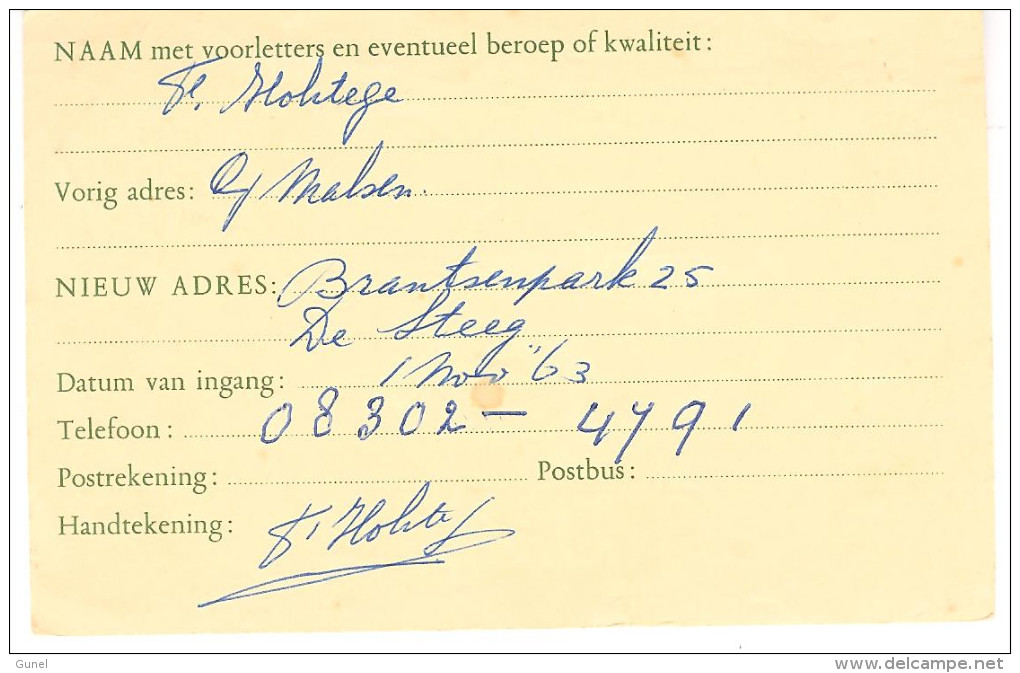 NAAM met voorletters en eventueel beroep of kwaliteit:
Vorig adres: Malsen.
NIEUW ADRES: Brantsenpark 25
De Steeg
Datum van ingang: 1 Nov "63
Telefoon: 08302 - 4791
Postrekening: Postbus:
Handtekening:
Gunel
www.delcampe.net